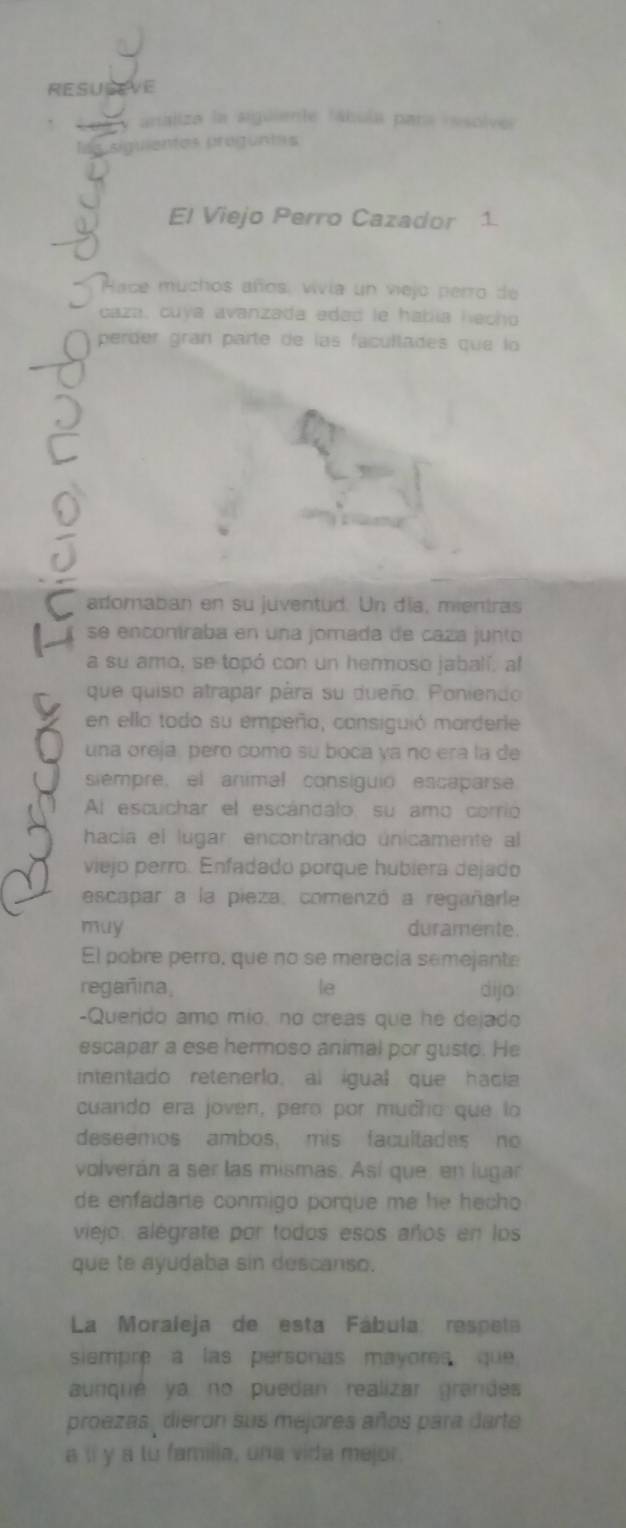 RESUELVE
1. analiza la siguiente fábula para resolver
las siguientes preguntas
El Viejo Perro Cazador 1
Hace muchos años, vivía un viejo perro de
caza, cuya avanzada edad le había hecho
perder gran parte de las facultades que lo
adornaban en su juventud. Un día, mientras
se encontraba en una jornada de caza junto
a su amo, se topó con un hermoso jabalí, al
que quiso atrapar para su dueño. Poniendo
en ello todo su empeño, consiguió morderle
una oreja, pero como su boca ya no era la de
siempre, el animal consiguió escaparse.
Al escuchar el escándalo, su amo corrió
hacia el lugar, encontrando únicamente al
viejo perro. Enfadado porque hubiera dejado
escapar a la pieza, comenzó a regañarle
muy duramente.
El pobre perro, que no se merecía semejante
regañina, le dijo:
-Querido amo mío, no creas que he dejado
escapar a ese hermoso animal por gusto. He
intentado retenerlo, al igual que hacía
cuando era joven, pero por mucho que lo
deseemos ambos, mis facultades no
volverán a ser las mismas. Así que, en lugar
de enfadarte conmigo porque me he hecho
viejo, alégrate por todos esos años en los
que te ayudaba sin descanso.
La Moraleja de esta Fábula: respeta
siempre a las personas mayores, que
aunque ya no puedan realizar grandes
proezas, dieron sus mejores años para darte
a ti y a tu familia, una vida mejor.
Buscar Inicio, nudo y desenlace